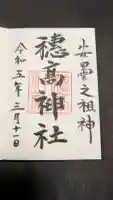 安曇之祖神
穂髙神社
令和五年三月十一日